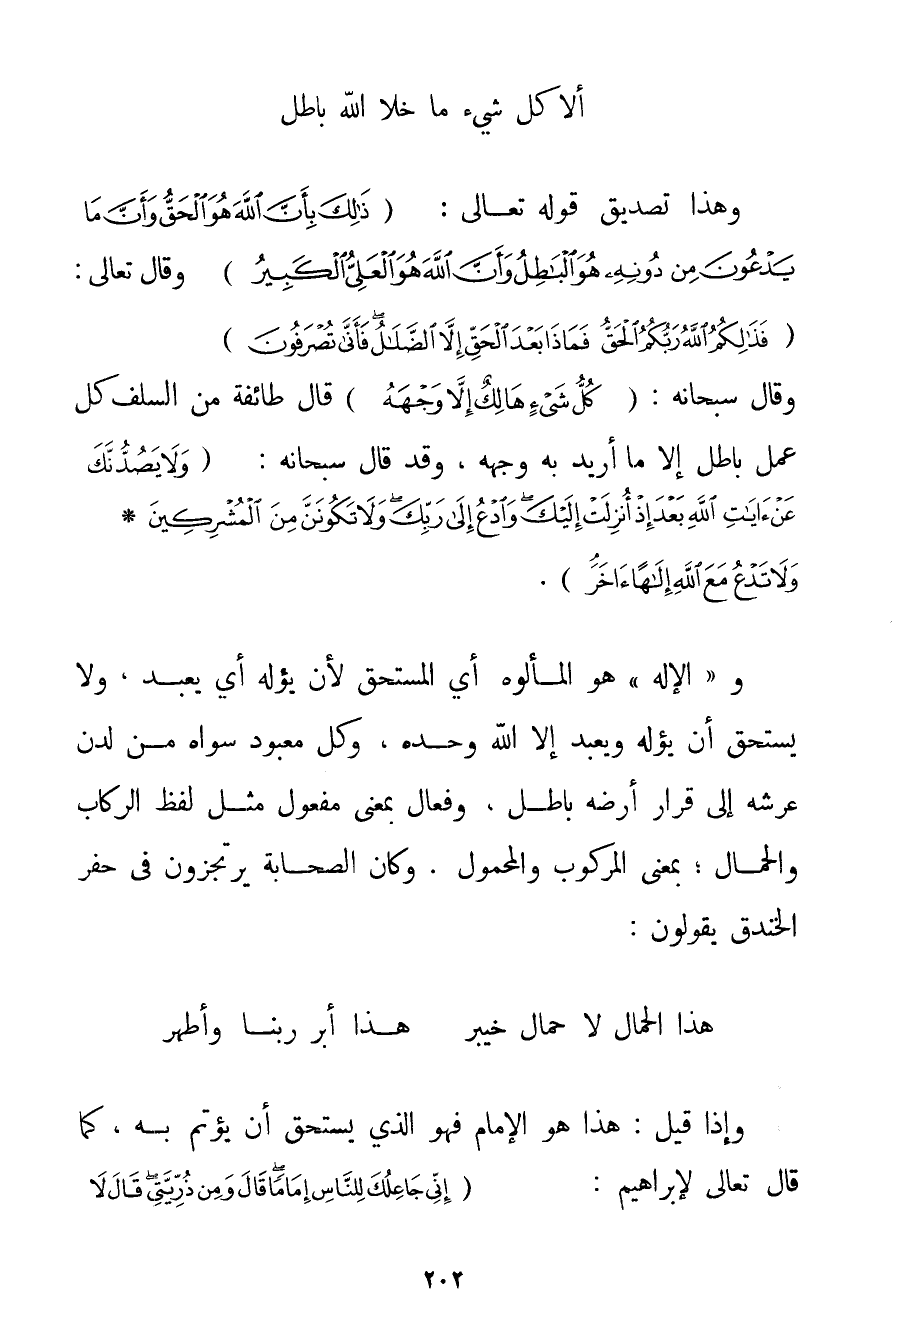 ألا كل شيء ما خلا الله باطل
وهذا تصديق قوله تعالى : ( ذَٰلِكَ بِأَنَّ ٱللَّهَ هُوَ ٱلْحَقُّ وَأَنَّ مَا
يَدْعُونَ مِن دُونِهِۦ هُوَ ٱلْبَٰطِلُ وَأَنَّ ٱللَّهَ هُوَ ٱلْعَلِىُّ ٱلْكَبِيرُ ) وقال تعالى :
( فَذَٰلِكُمُ ٱللَّهُ رَبُّكُمُ ٱلْحَقُّ فَمَاذَا بَعْدَ ٱلْحَقِّ إِلَّا ٱلضَّلَٰلُ ۖ فَأَنَّىٰ تُصْرَفُونَ )
وقال سبحانه : ( كُلُّ شَىْءٍ هَالِكٌ إِلَّا وَجْهَهُ ) قال طائفة من السلف كل
عمل باطل إلا ما أريد به وجهه ، وقد قال سبحانه : ( وَلَا يَصُدُّنَّكَ
عَنْ ءَايَٰتِ ٱللَّهِ بَعْدَ إِذْ أُنزِلَتْ إِلَيْكَ ۖ وَٱدْعُ إِلَىٰ رَبِّكَ ۖ وَلَا تَكُونَنَّ مِنَ ٱلْمُشْرِكِينَ *
وَلَا تَدْعُ مَعَ ٱللَّهِ إِلَٰهًا ءَاخَرَ ) .
و « الإله » هو المألوه أي المستحق لأن يؤله أي يعبد ، ولا
يستحق أن يؤله ويعبد إلا الله وحده ، وكل معبود سواه من لدن
عرشه إلى قرار أرضه باطل ، وفعال بمعنى مفعول مثل لفظ الركاب
والحمال ؛ بمعنى المركوب والمحمول . وكان الصحابة يرتجزون فى حفر
الخندق يقولون :
هذا الحمال لا حمال خيبر هذا أبر ربنا وأطهر
وإذا قيل : هذا هو الإمام فهو الذي يستحق أن يؤتم به ، كما
قال تعالى لإبراهيم : ( إِنِّى جَاعِلُكَ لِلنَّاسِ إِمَامًا ۖ قَالَ وَمِن ذُرِّيَّتِى ۖ قَالَ لَا
٢٠٢